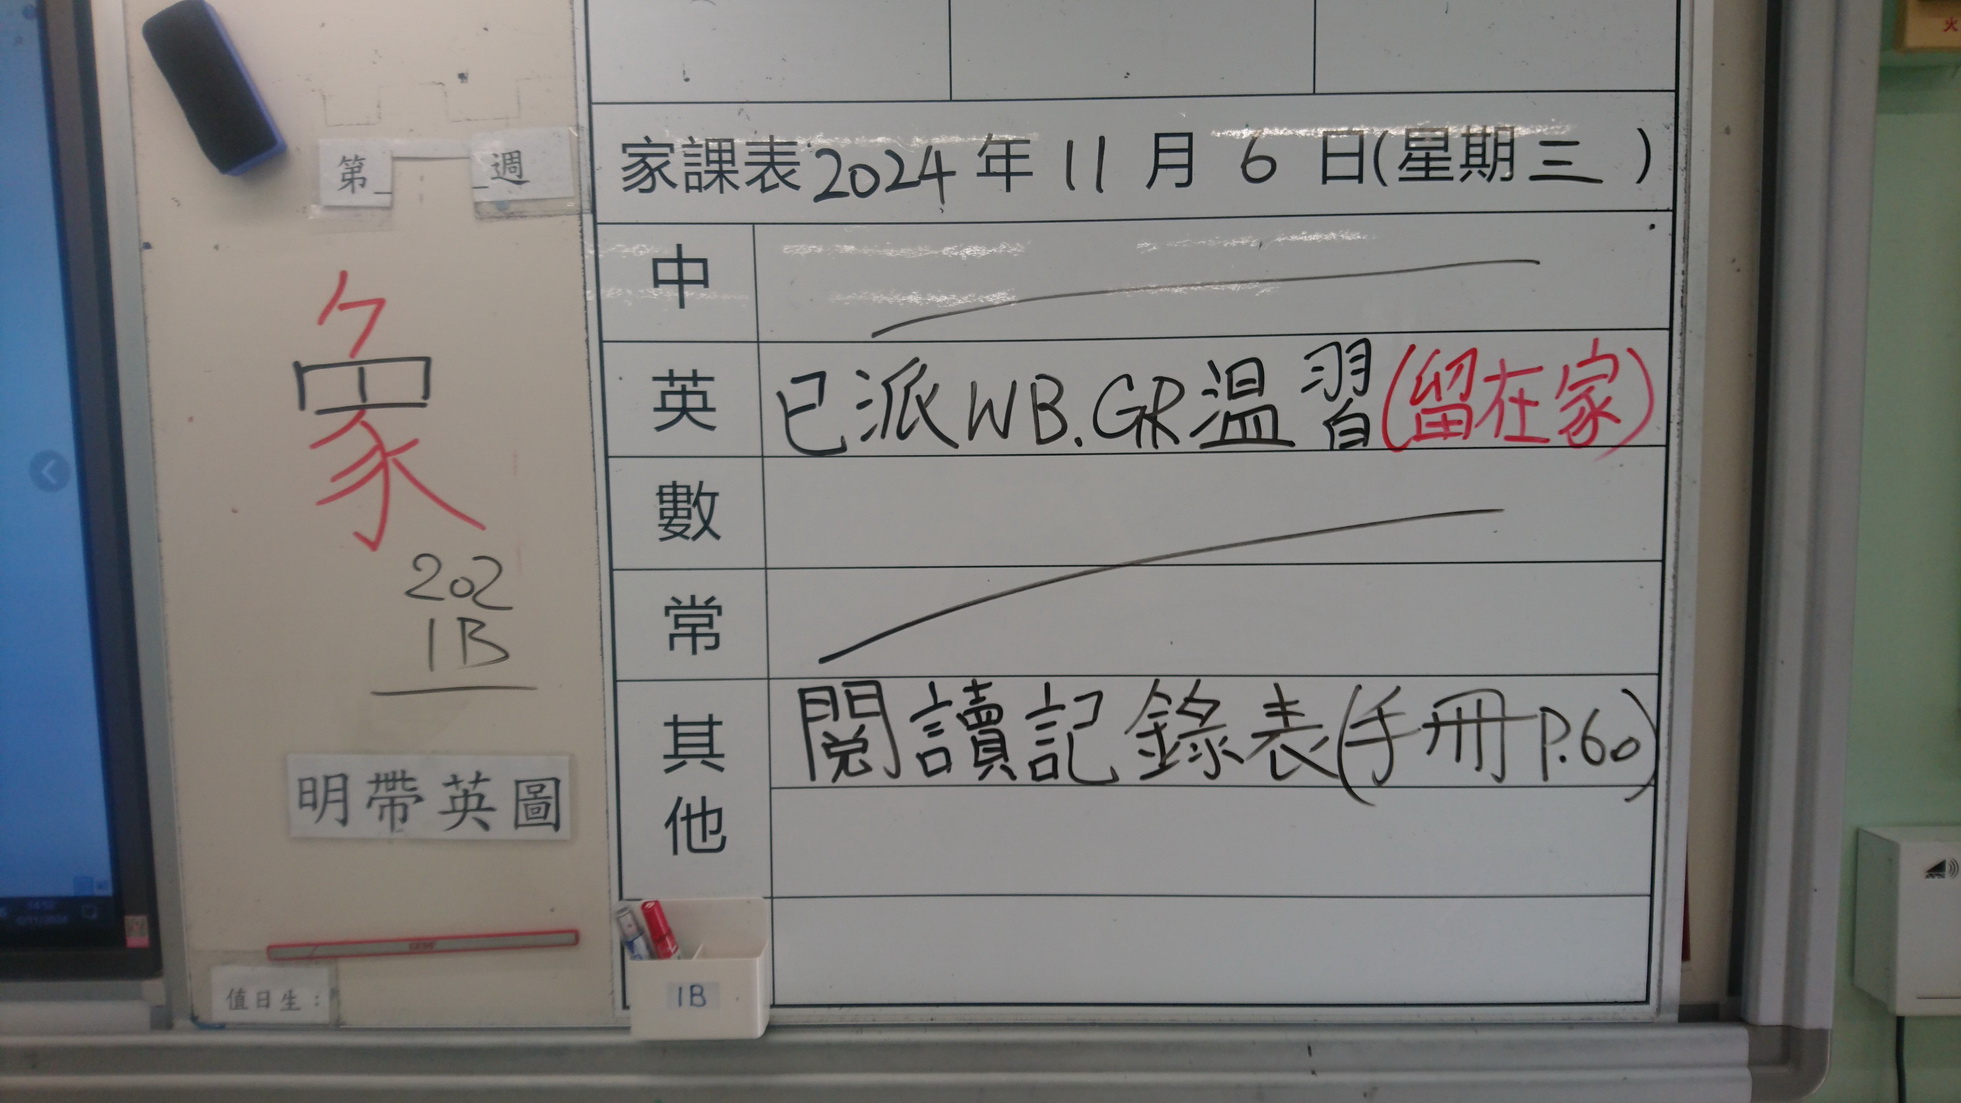 第 週
象
202
1B
明帶英圖
值日生：
家課表 2024 年 11 月 6 日(星期三)
中
英 已派WB.GR溫習(留在家)
數
常
其他 閱讀記錄表(手冊P.60)
1B
火